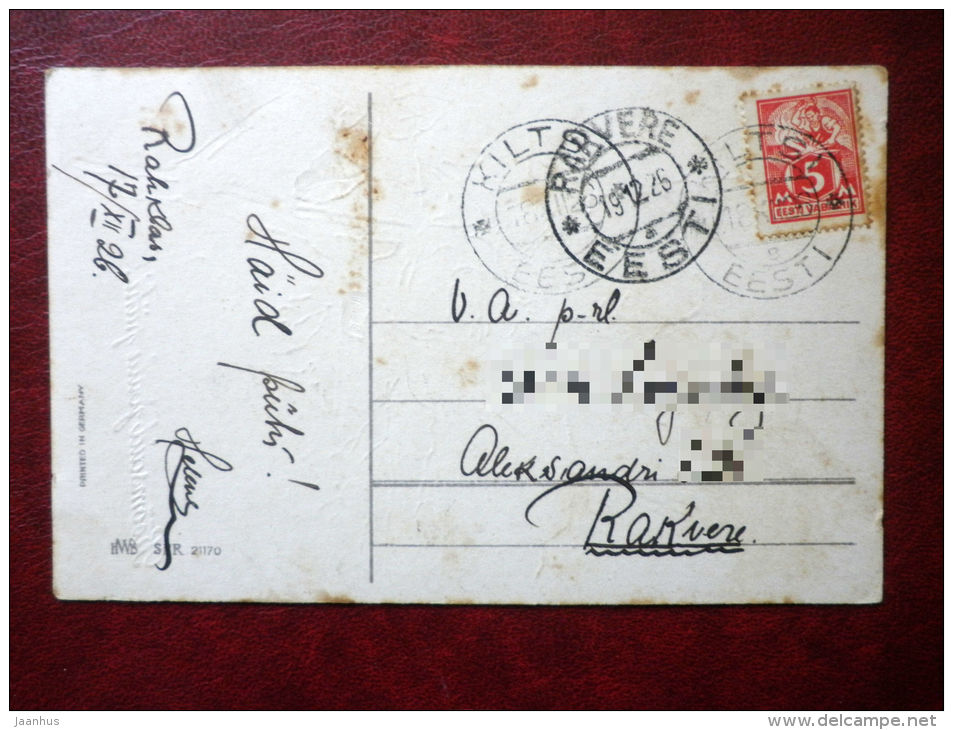 Rahklas,
17/XII 26.
Häid pühi!
Helene
PRINTED IN GERMANY
HWB SER 21170
KILTSI
EESTI
RAKVERE
19.12.26
EESTI
EESTI
5
M M
EESTI VABARIIK
V. A. p-rl.
Aleksandri
Rakvere.
Jaanhus
www.delcampe.net